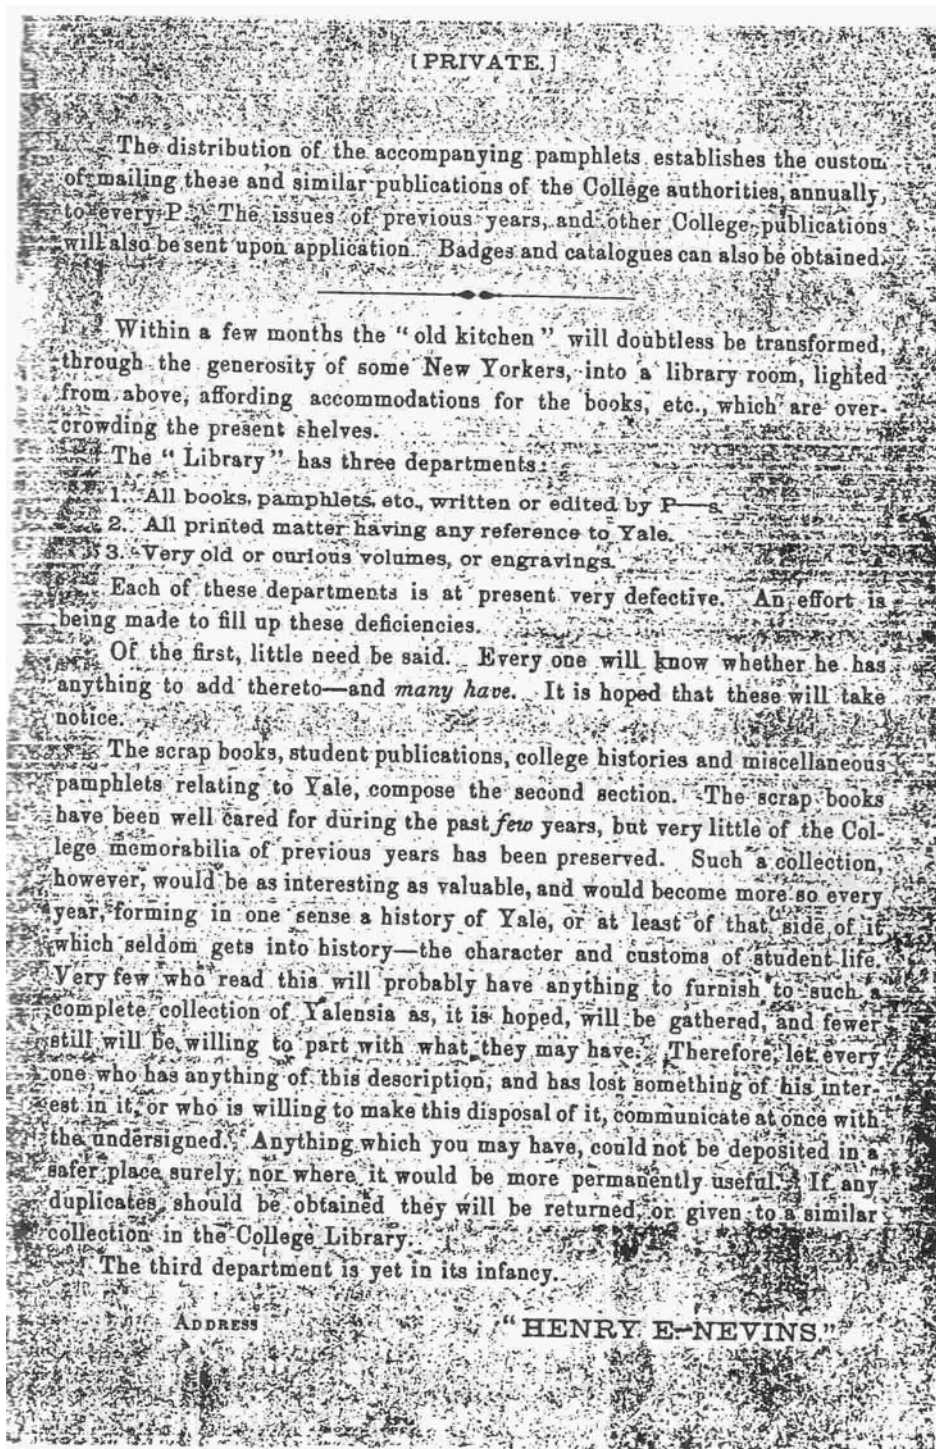 [PRIVATE.]
The distribution of the accompanying pamphlets establishes the custom
of mailing these and similar publications of the College authorities, annually,
to every P. The issues of previous years, and other College publications
will also be sent upon application. Badges and catalogues can also be obtained.
Within a few months the "old kitchen" will doubtless be transformed,
through the generosity of some New Yorkers, into a library room, lighted
from above, affording accommodations for the books, etc., which are over-
crowding the present shelves.
The "Library" has three departments:
1. All books, pamphlets, etc., written or edited by P—s.
2. All printed matter having any reference to Yale.
3. Very old or curious volumes, or engravings.
Each of these departments is at present very defective. An effort is
being made to fill up these deficiencies.
Of the first, little need be said. Every one will know whether he has
anything to add thereto—and many have. It is hoped that these will take
notice.
The scrap books, student publications, college histories and miscellaneous
pamphlets relating to Yale, compose the second section. The scrap books
have been well cared for during the past few years, but very little of the Col-
lege memorabilia of previous years has been preserved. Such a collection,
however, would be as interesting as valuable, and would become more so every
year, forming in one sense a history of Yale, or at least of that side of it
which seldom gets into history—the character and customs of student life.
Very few who read this will probably have anything to furnish to such a
complete collection of Yalensia as, it is hoped, will be gathered, and fewer
still will be willing to part with what they may have. Therefore, let every
one who has anything of this description, and has lost something of his inter-
est in it, or who is willing to make this disposal of it, communicate at once with
the undersigned. Anything which you may have, could not be deposited in a
safer place surely, nor where it would be more permanently useful. If any
duplicates should be obtained they will be returned, or given to a similar
collection in the College Library.
The third department is yet in its infancy.
ADDRESS "HENRY E. NEVINS."